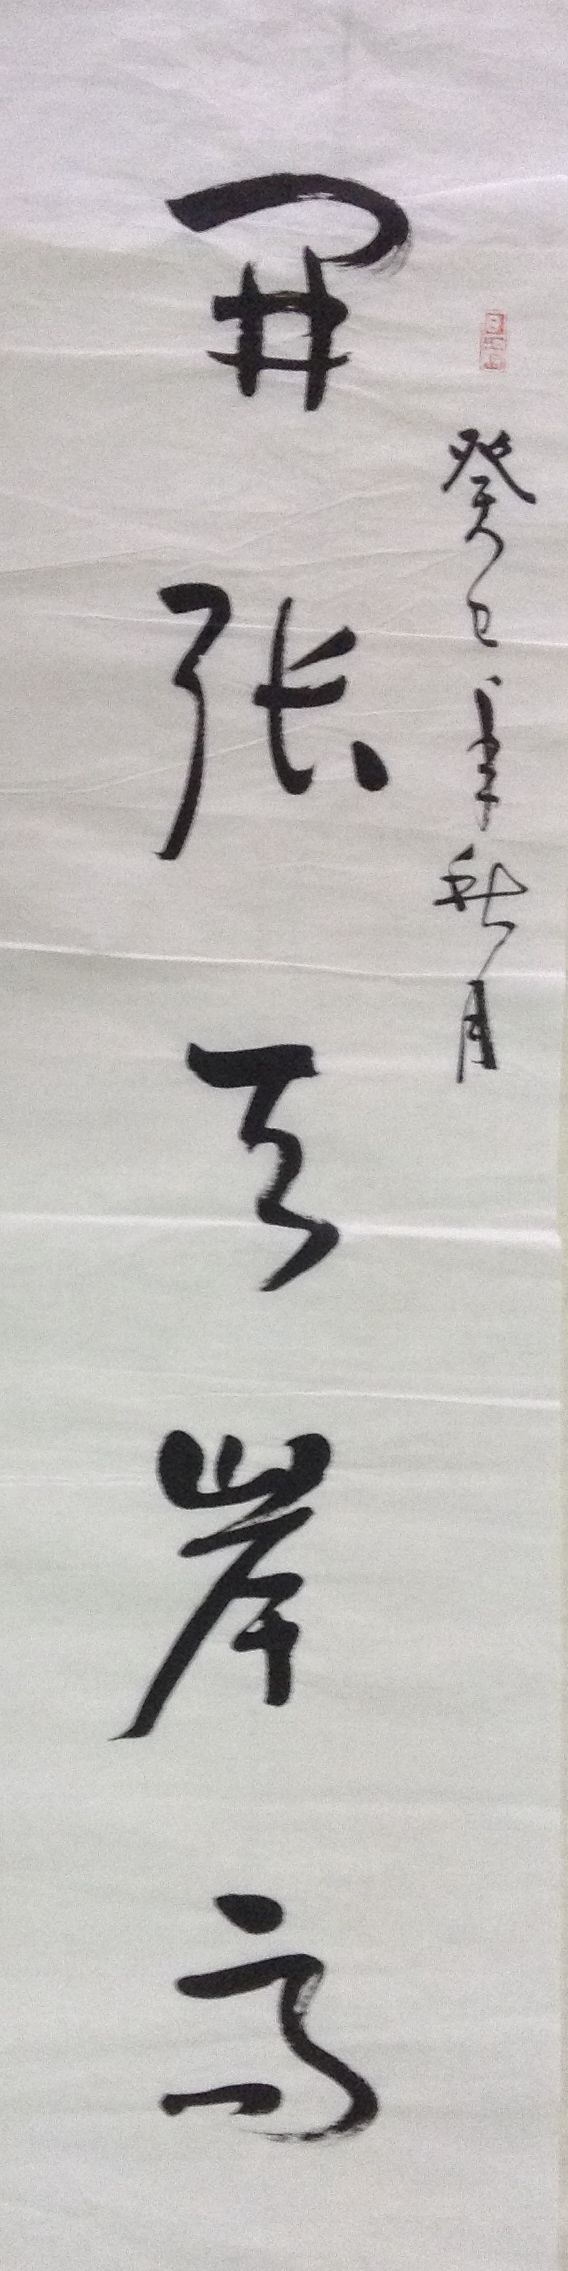 癸巳年秋月
開張天岸馬